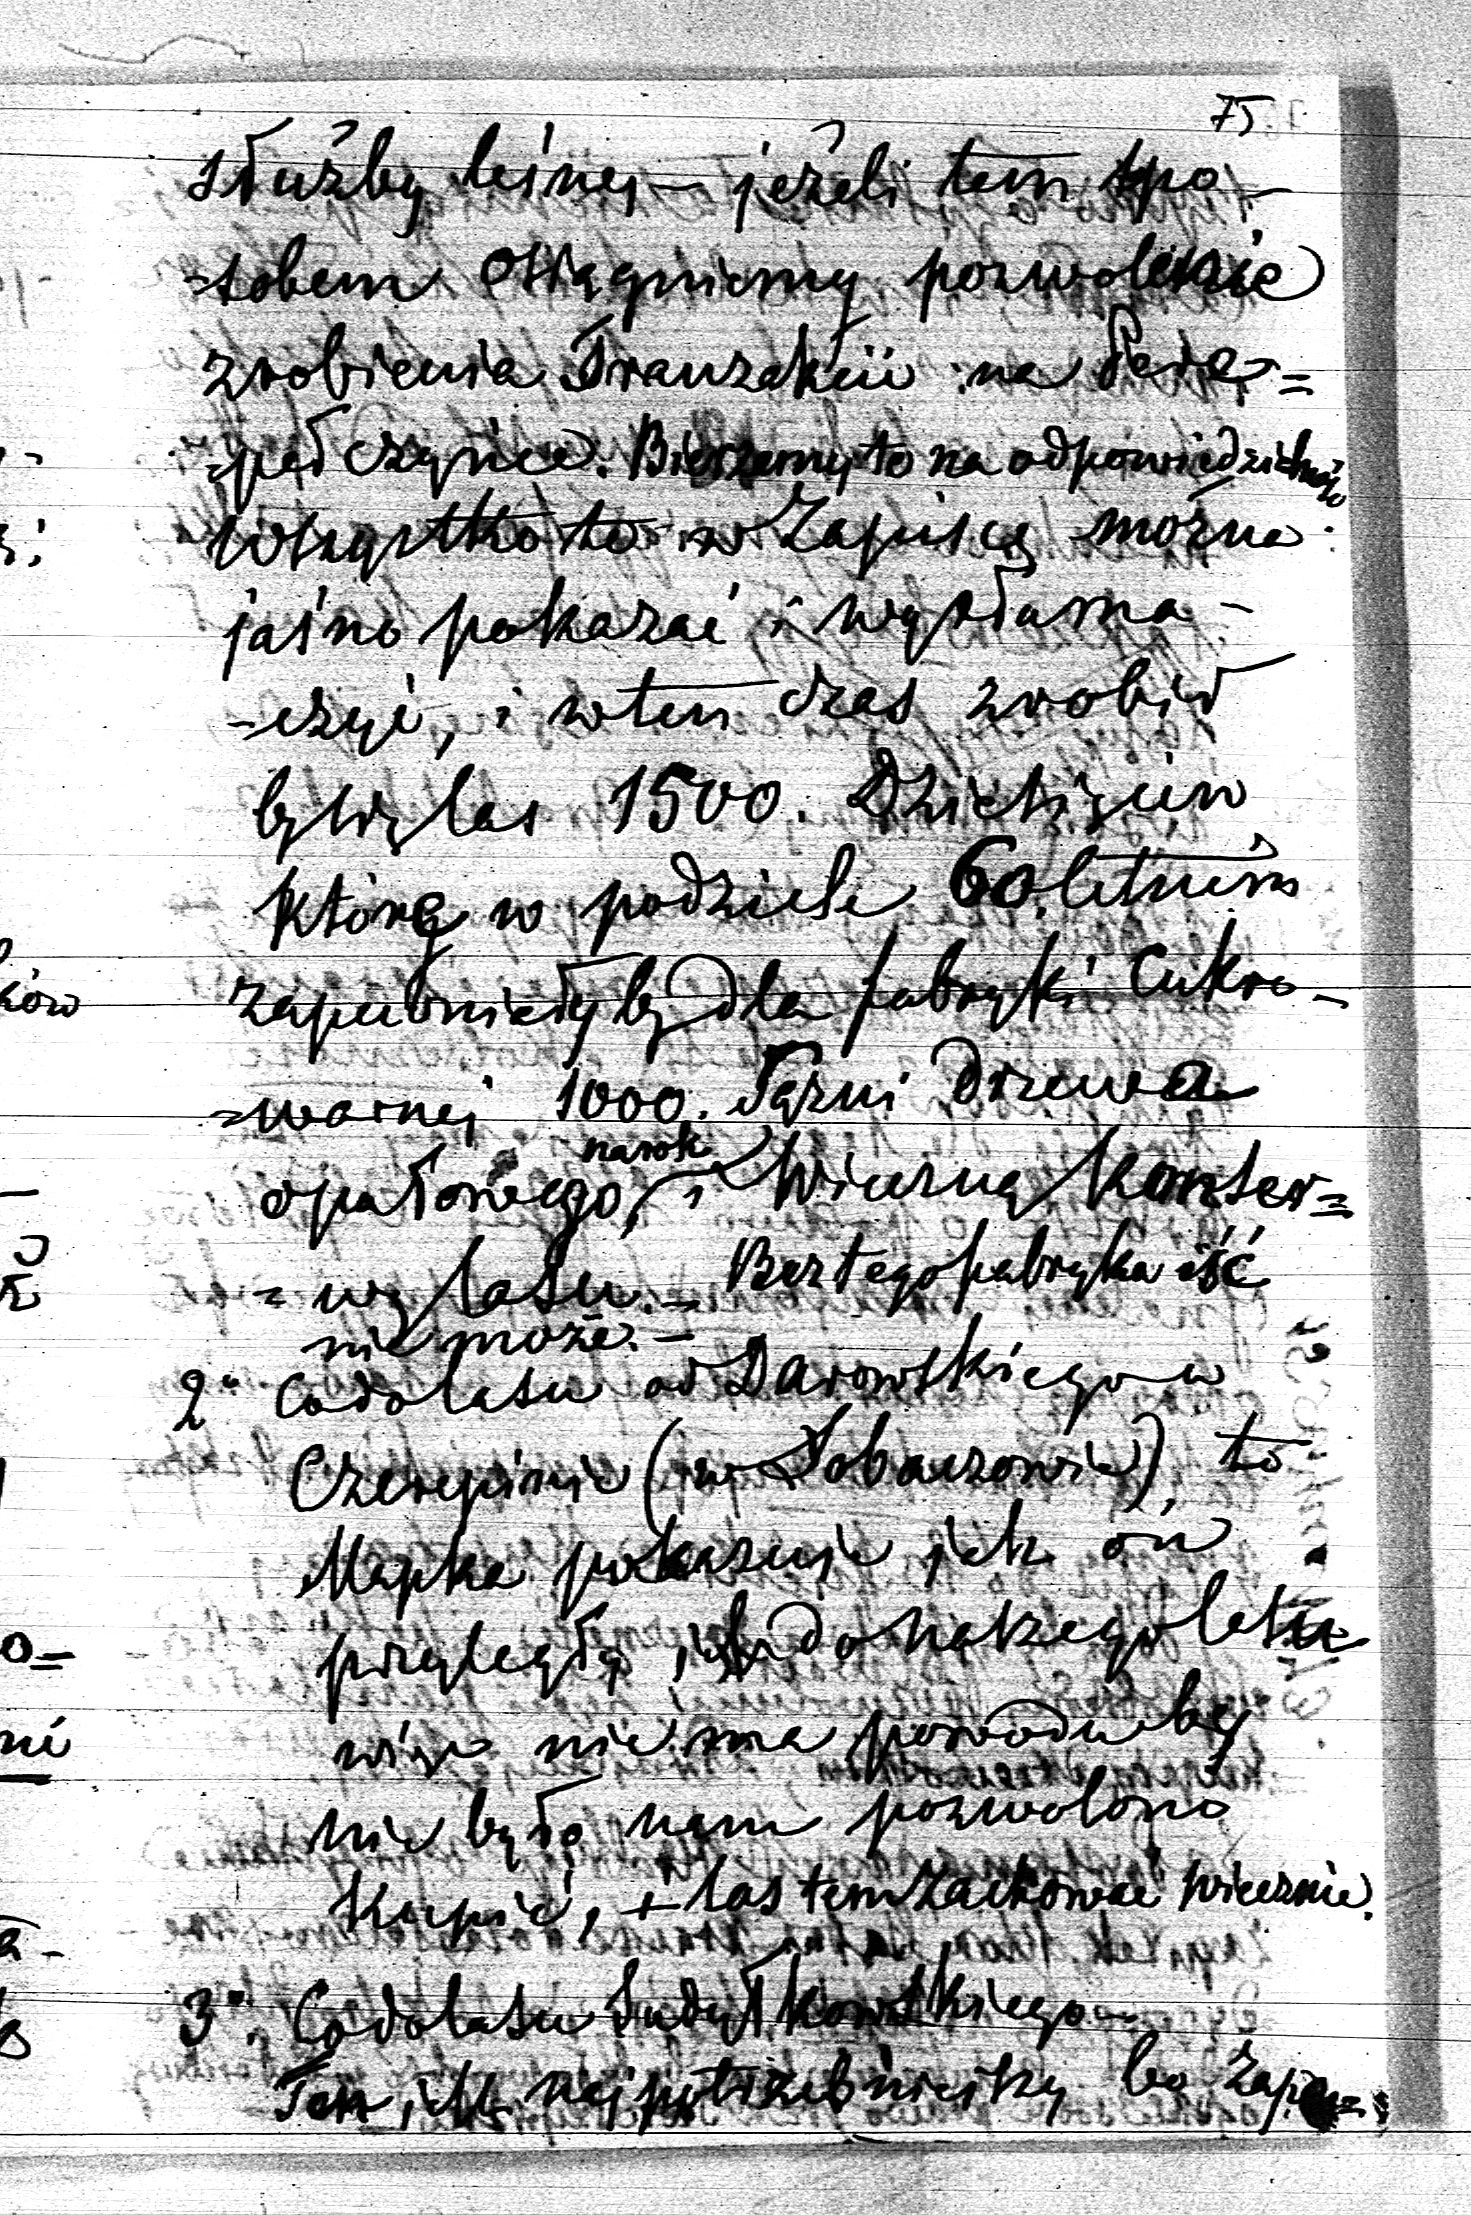 75.
służby leśnej – jeżeli tem spo-
-sobem osiągniemy pozwolenie
zrobienia Tranzakcii na Pere-
=pełczyńce. Bierzemy to na odpowiedzialność
wszystko to w Zapiscę można
jaśno pokazać i wytłuma-
-czyć, i w ten czas zrobił
by się las 1500. Dziesięcin
którę w podziele 60. letnim
zapewniłby dla fabryki Cukro-
=warnej 1000. Sążni drzewa
opałowego, na rok i Wieczną konser=
=wę lasu. – Bez tego fabryka iść
nie może. –
2° Co do lasu od Darowskiego w
Czerepinie (w Sobaczowie), to
Mapka pokazuje jak on
przyległy jest do naszego lasu
więc nie ma powodu by
nie było nam pozwolono
kupić, i las tem zachować wiecznie.
3°. Co do lasu Sudyłkowskiego
Ten jest najpotrzebniejszy bo